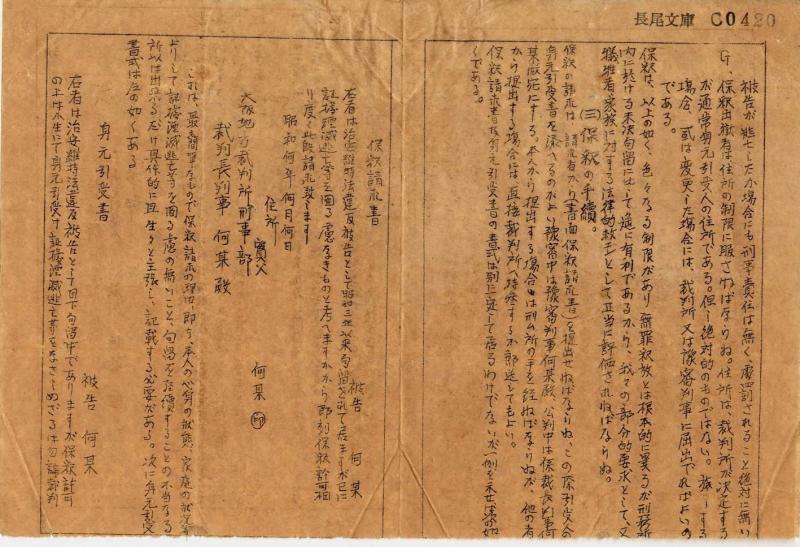 長尾文庫 C0420
被告が逃亡したか場合にも刑事責任は無く、處罰されること絶対に無い
G、保釈出獄者は住所の制限に服さねばならぬ。住所は、裁判所が決定する
が通常身元引受人の住所である。但し絶対的のものではない。旅行する
場合、或は変更した場合には、裁判所又は豫審判事に届出でればよいの
である。
保釈は、以上の如く、色々なる制限があり無罪釈放とは根本的に異るが刑務所
内に於ける未決勾留に比して遥に有利であるから、我々の部分的要求として、又
犠牲者家族に対する法律的救エンとして正当に評価されねばならぬ。
(三)保釈の手續。
保釈の請求は、請求者から(書面保釈請求書)を提出せねばならぬ、この際引受人の
身元引受書を添へるのがよい豫審中は豫審判事何某殿、公判中は係裁判長判事何
某殿宛にする。本人から提出する場合は刑ム所の手を経ねばならぬが、他の者
から提出する場合には直接裁判所へ持参するか郵送してもよい。
保釈請求書及身元引受書の書式は別に定って居るわけでないが一例を示せば次の如
くである。
保釈請求書
被告 何某
右者は治安維持法違反被告として昭和三年以来勾留されて居ますが已に
証拠湮滅逃亡等を圖る慮なきものと考へますから即刻保釈許可相
成り度く此段請求致します
昭和何年何月何日
住所
實父 何某 ㊞
大阪地方裁判所刑事部
裁判長判事 何某殿
これは、最簡單なもので保釈請求の理由、即ち本人の心身の状態、家庭の状況等
よりして証拠湮滅逃亡等を圖る慮の無いこと、勾留を存續することの不当なる
所以は出来るだけ具体的に且生々と主張し、記載する必要がある。次に身元引受
書式は左の如くである
身元引受書
被告 何某
右者は治安維持法違反被告として目下勾留中でありますが保釈許可
の上は小生にて身元引受け証拠湮滅逃亡等をなさしめざるは勿論裁判